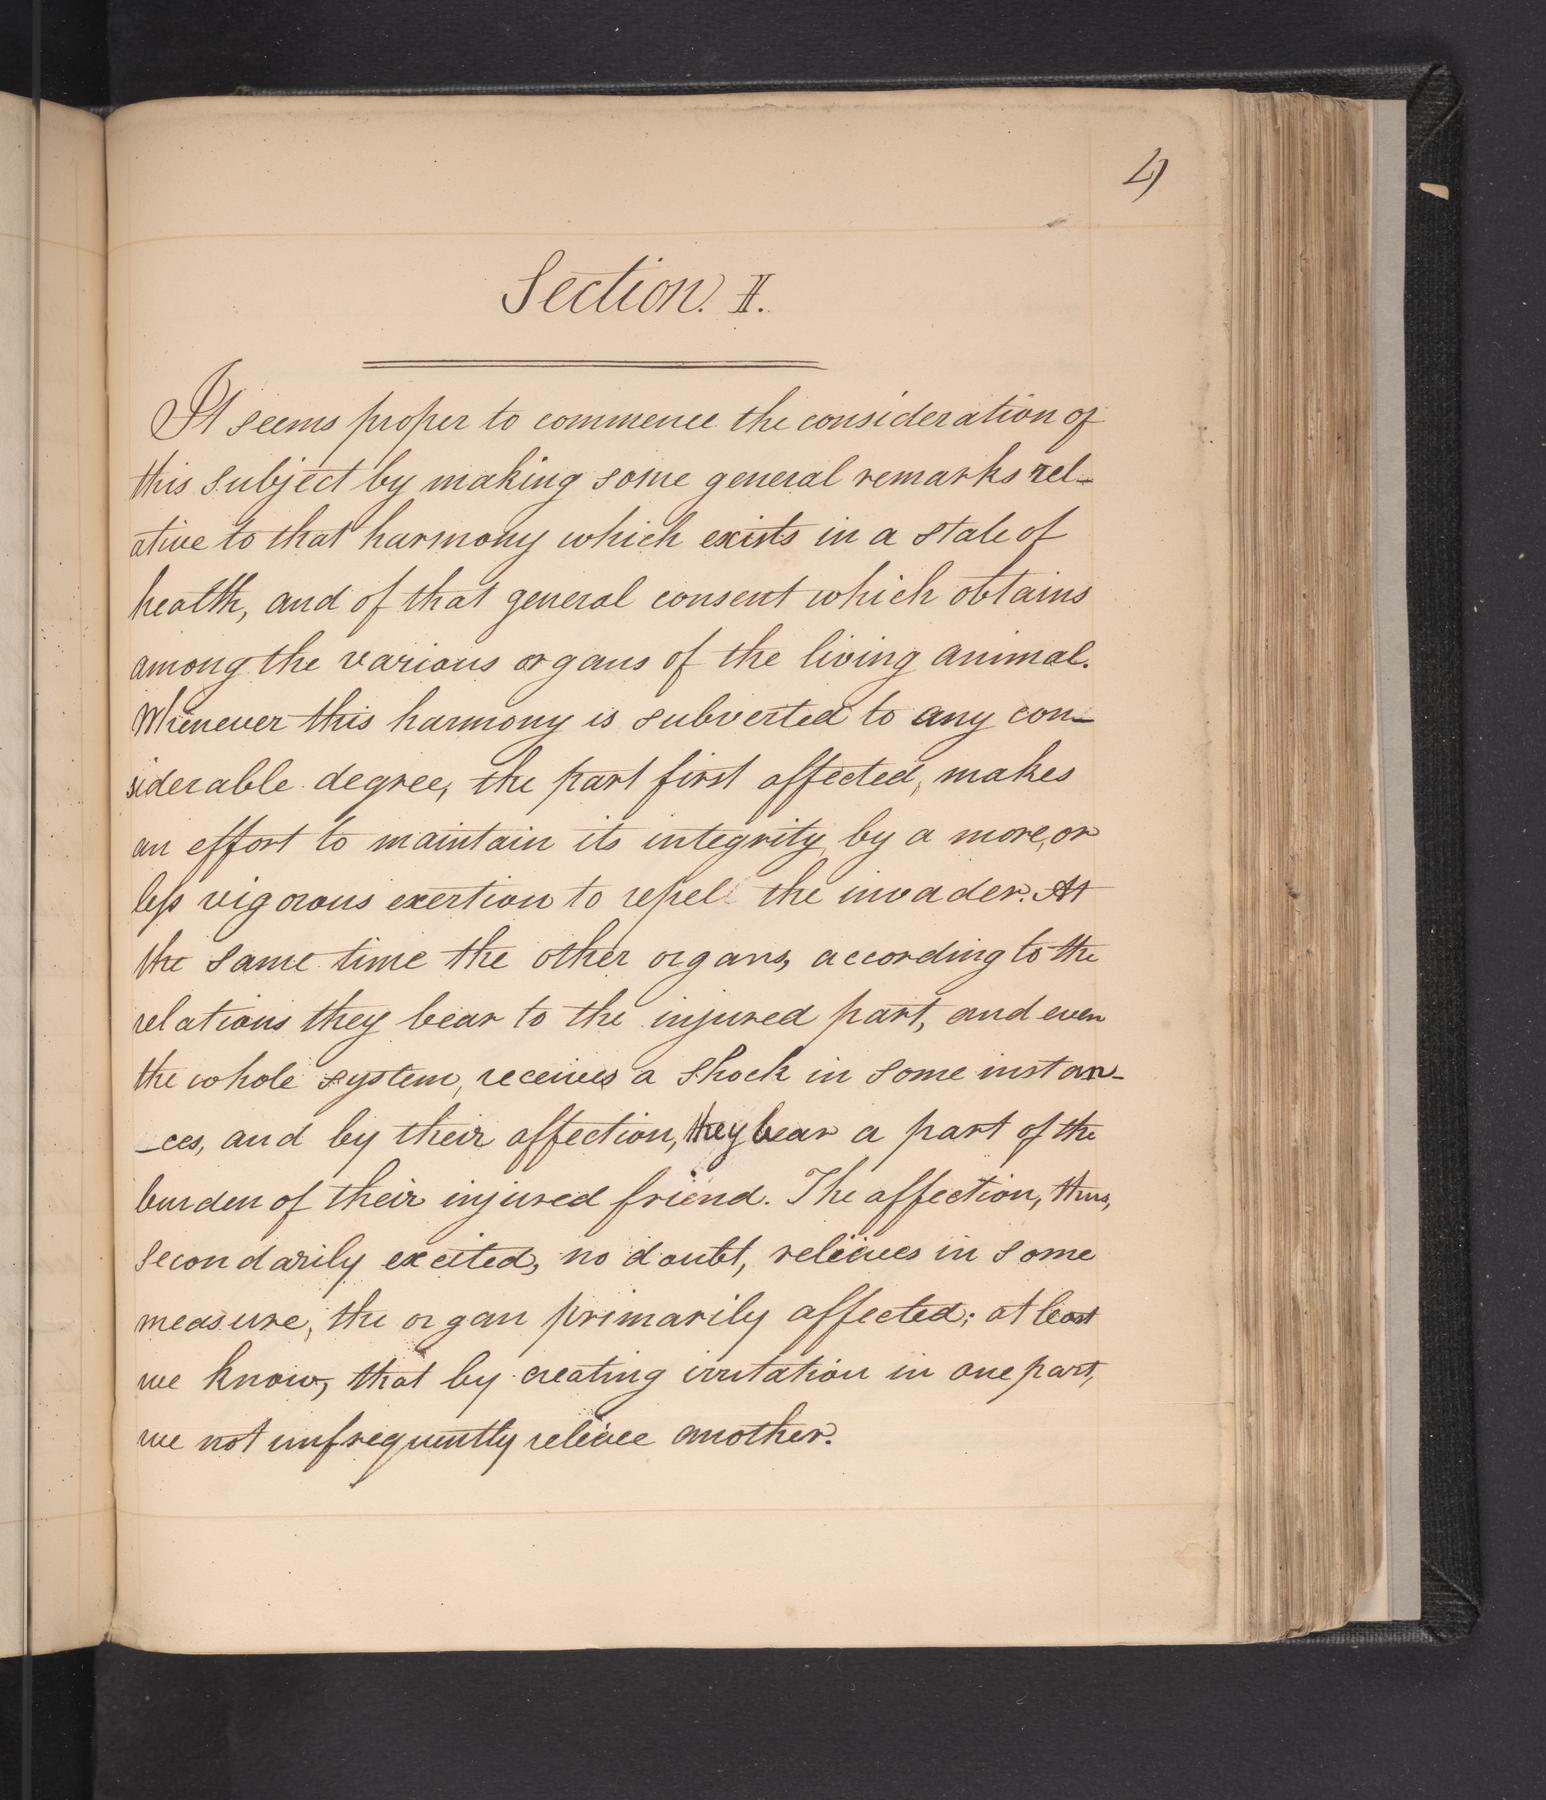 4
Section. II.
It seems proper to commence the consideration of
this subject by making some general remarks rel-
ative to that harmony which exists in a state of
health, and of that general consent which obtains
among the various organs of the living animal.
Whenever this harmony is subverted to any con-
siderable degree, the part first affected, makes
an effort to maintain its integrity, by a more, or
less vigorous exertion to repel the invader. At
the same time the other organs, according to the
relations they bear to the injured part, and even
the whole system, receives a shock in some instan-
-ces, and by their affection, they bear a part of the
burden of their injured friend. The affection, thus,
secondarily excited, no doubt, relieves in some
measure, the organ primarily affected; at least
we know, that by creating irritation in one part,
we not unfrequently relieve another.